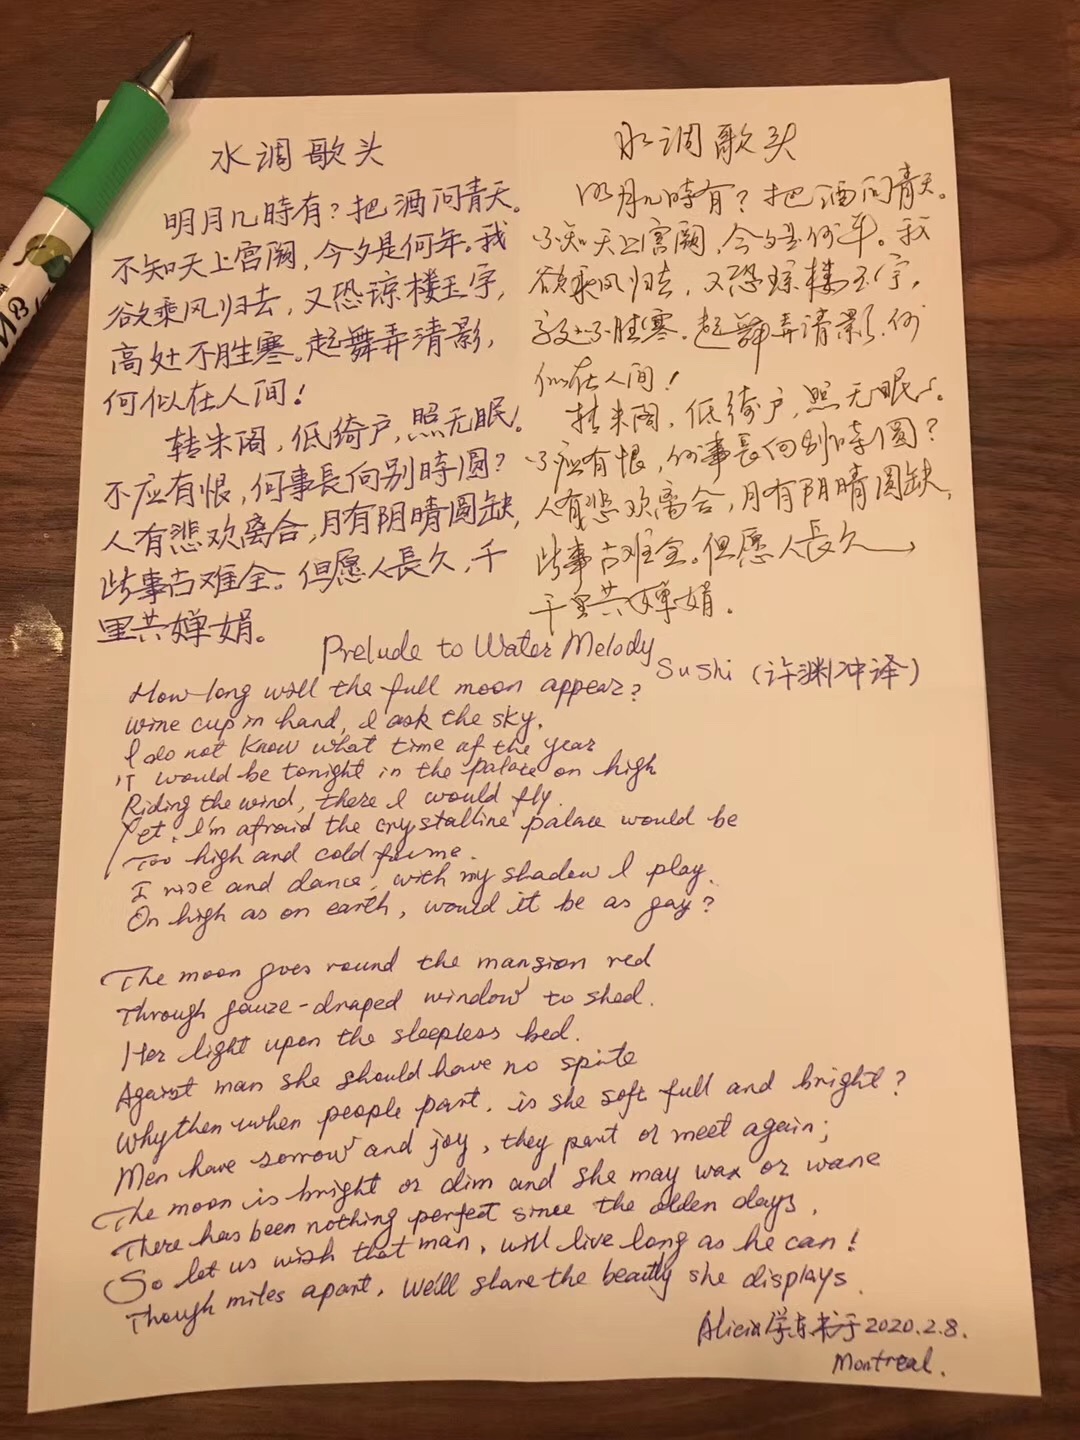 水调歌头
明月几時有？把酒问青天。
不知天上宫阙，今夕是何年。我
欲乘风归去，又恐琼楼玉宇，
高处不胜寒。起舞弄清影，
何似在人间！
转朱阁，低绮户，照无眠。
不应有恨，何事長向别時圆？
人有悲欢离合，月有阴晴圆缺，
此事古难全。但愿人長久，千
里共婵娟。
水调歌头
明月几時有？把酒问青天。
不知天上宫阙，今夕是何年。我
欲乘风归去，又恐琼楼玉宇，
高处不胜寒。起舞弄清影，何
似在人间！
转朱阁，低绮户，照无眠。
不应有恨，何事長向别時圆？
人有悲欢离合，月有阴晴圆缺，
此事古难全。但愿人長久，
千里共婵娟。
Prelude to Water Melody
Su Shi (许渊冲译)
How long will the full moon appear?
wine cup in hand, I ask the sky.
I do not know what time of the year
it would be tonight in the palace on high
Riding the wind, there I would fly.
Yet, I'm afraid the crystalline palace would be
Too high and cold for me.
I rise and dance, with my shadow I play.
On high as on earth, would it be as gay?
The moon goes round the mansion red
Through gauze-draped window to shed.
Her light upon the sleepless bed.
Against man she should have no spite
Why then when people part, is she soft full and bright?
Men have sorrow and joy, they part or meet again;
The moon is bright or dim and she may wax or wane
There has been nothing perfect since the olden days.
So let us wish that man, will live long as he can!
Though miles apart, we'll share the beauty she displays.
Alicia 学东书于 2020.2.8.
Montreal.